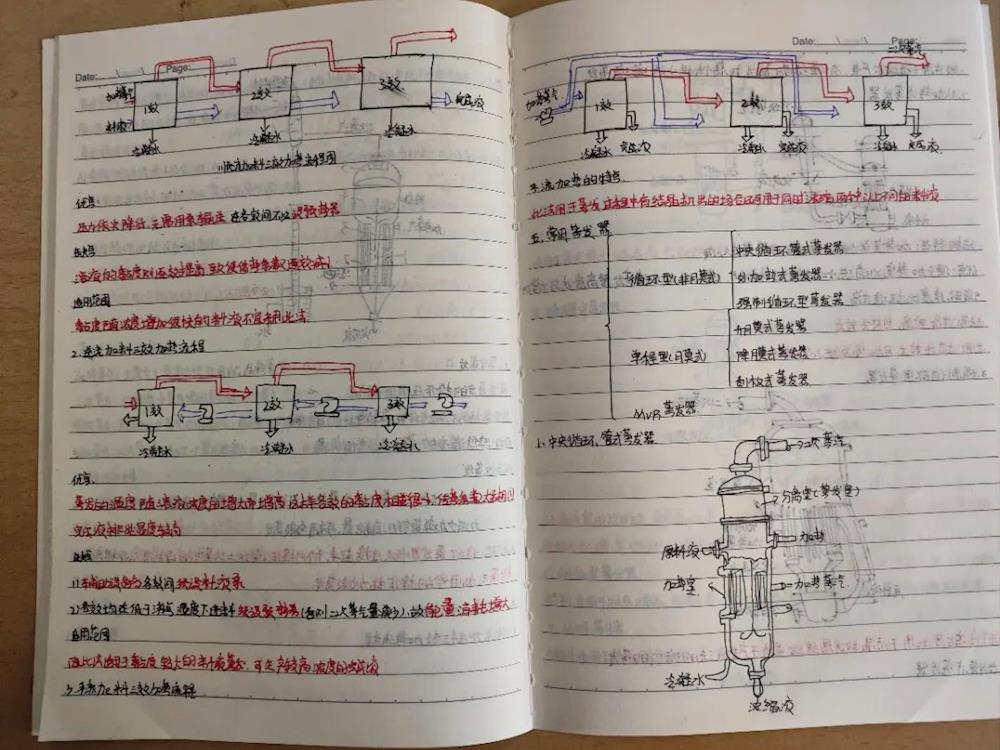 Date: Page:
加热蒸汽
1效
2效
3效
料液
完成液
冷凝水
冷凝水
冷凝水
顺流加料三效加热流程图
优点
压力依次降低 无需用泵输送 在各效间不必设预热器
缺点
溶液的黏度则逐效提高 致使传热系数逐效减小
适用范围
黏度随浓度增加很快的料液不宜采用此法
2. 逆流加料三效加热流程
1效
2效
3效
冷凝水
冷凝水
冷凝水
优点
蒸发的温度随溶液浓度的增大而增高 这样各效的黏度相差很小,传热系数大致相同
完成液排出温度较高
缺点
1)辅助设备多 各效间须设料液泵
2)各效均在低于沸点温度下进料 须设预热器(否则二次蒸气量减少)故能量消耗增大
适用范围
因此法适用于黏度较大的料液蒸发,可生产较高浓度的浓缩液
3. 平流加料三效加热流程
Date: Page:
二次蒸气
加热蒸气
1效
2效
3效
冷凝水 完成液
冷凝水 完成液
冷凝水 完成液
平流加热的特点
此法用于蒸发过程中有结晶析出的场合还可用于同时浓缩两种以上不同的料液
五、常用蒸发器
循环型(非膜式)
中央循环管式蒸发器
外加热式蒸发器
强制循环型蒸发器
单程型(膜式)
升膜式蒸发器
降膜式蒸发器
刮板式蒸发器
MVR蒸发器
1. 中央循环管式蒸发器
二次蒸汽
分离室(蒸发室)
原料液
加热室
加热蒸汽
冷凝水
浓缩液